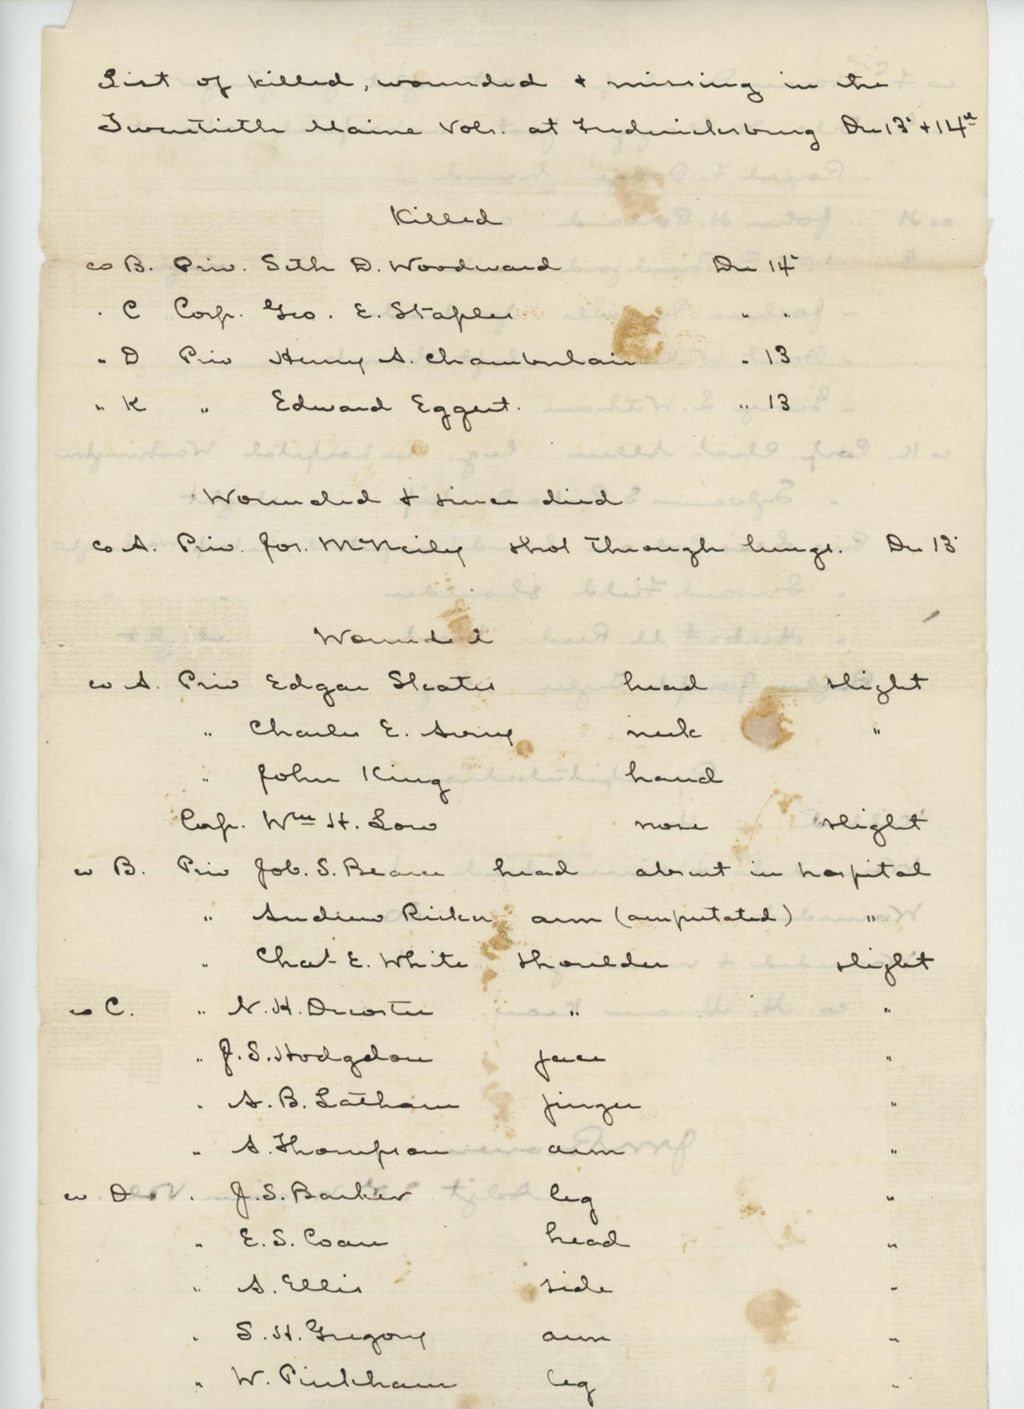 List of killed, wounded & missing in the
Twentieth Maine Vols. at Fredericksburg Dec 13 & 14th
Killed
Co B. Priv. Seth D. Woodward Dec 14
" C Corp. Geo. E. Staples " "
" D Priv Henry A. Chamberlain " 13
" K " Edward Eggert. " 13
Wounded & since died
Co A. Priv. Jos. McNeily shot through lungs. Dec 13
Wounded
Co A. Priv Edgar Skates head slight
" Charles E. Avery neck "
" John King hand
Corp. Wm H. Low nose slight
Co B. Priv Job. S. Bearce head absent in hospital
" Andrew Ricker arm (amputated) "
" Chas E. White shoulder slight
Co C. " N. H. Decoster " "
" J. S. Hodgdon face "
" A. B. Latham finger "
" A. Thompson arm "
Co D. " J. S. Barker leg "
" E. S. Coan head "
" A. Ellis side "
" S. H. Gregory arm "
" W. Pinkham leg "